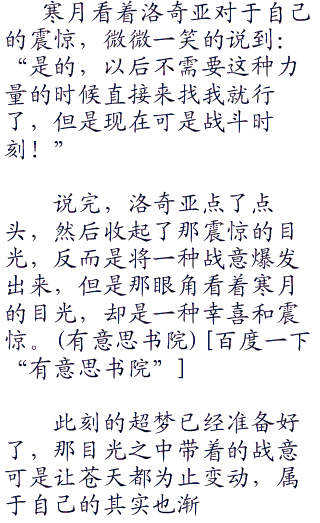 寒月看着洛奇亚对于自己
的震惊，微微一笑的说到：
“是的，以后不需要这种力
量的时候直接来找我就行
了，但是现在可是战斗时
刻！”
说完，洛奇亚点了点
头，然后收起了那震惊的目
光，反而是将一种战意爆发
出来，但是那眼角看着寒月
的目光，却是一种幸喜和震
惊。(有意思书院) [百度一下
“有意思书院”]
此刻的超梦已经准备好
了，那目光之中带着的战意
可是让苍天都为止变动，属
于自己的其实也渐